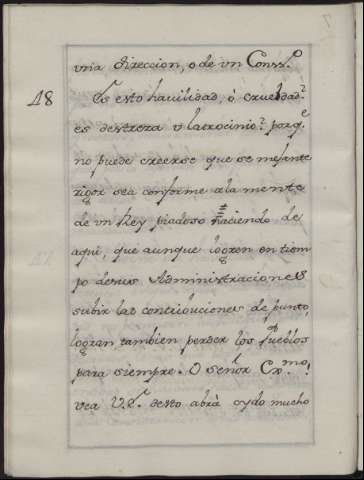 una direccion, o de un Conss.º
48 Es esto havilidad, ó crueldad?
es destreza v latrocinio? porq.e
no puede creerse que semejante
rigor sea conforme ala mente
de vn Rey piadoso haciendo de
aqui, que aunque logren en tiem
po desus Administraciones
subir las contribuciones de punto,
logran tambien perder los Pueblos
para siempre. O señor Ex.mo!
vea V.E. desto abrà oydo mucho